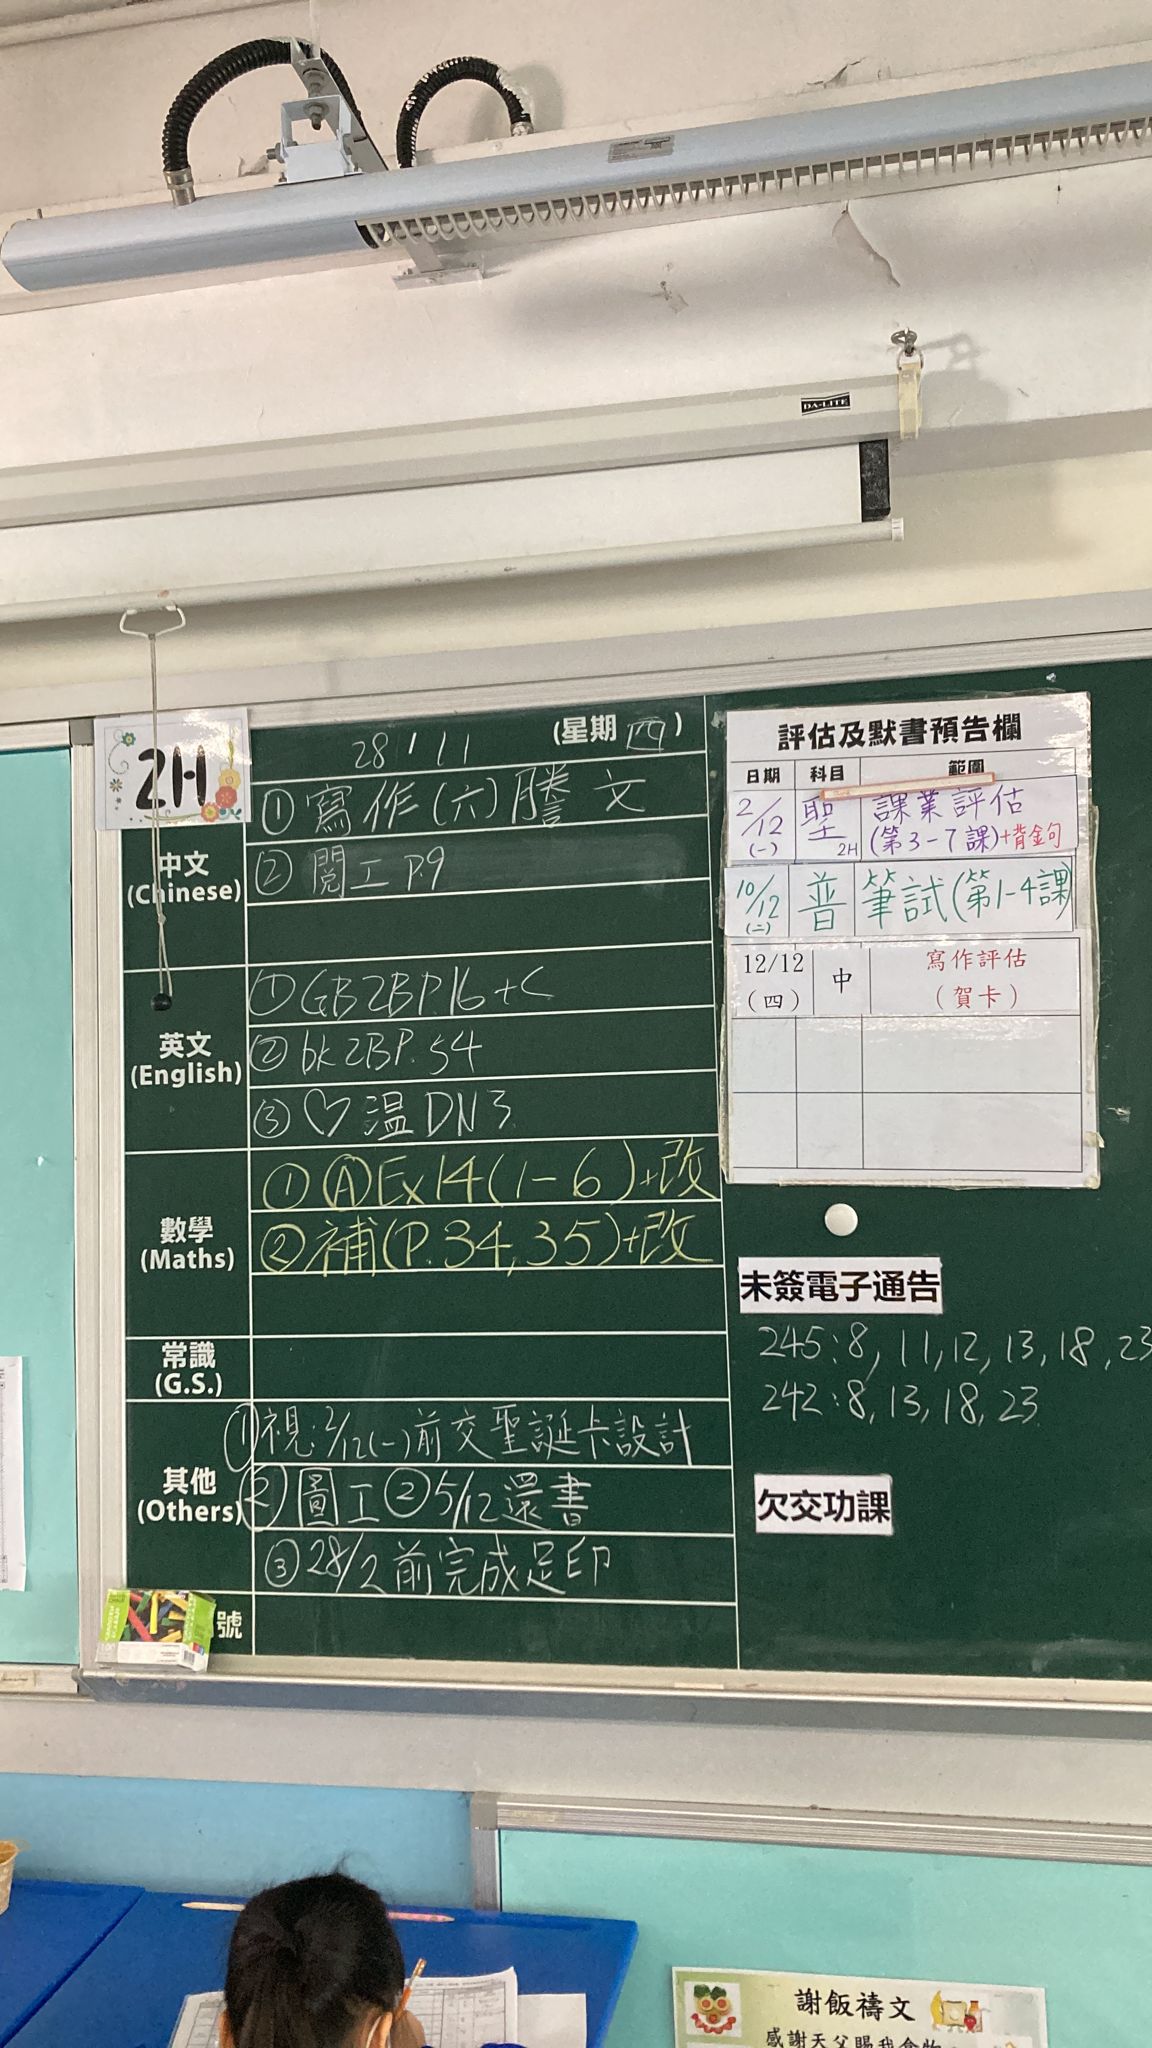 DA-LITE
2H
28/11
(星期四)
中文
(Chinese)
①寫作(六)謄文
②閱工P.9
英文
(English)
①GB2BP.16+C
②bk2BP.54
③♡溫DN3
數學
(Maths)
①ⒶEx14(1-6)+改
②補(P.34,35)+改
常識
(G.S.)
其他
(Others)
①視:2/12(一)前交聖誕卡設計
②圖工②5/12還書
③28/2前完成足印
號
評估及默書預告欄
日期 科目 範圍
2/12 (一) 聖 2H 課業評估 (第3-7課)+背金句
10/12 (二) 普 筆試(第1-4課)
12/12 (四) 中 寫作評估 (賀卡)
未簽電子通告
245:8,11,12,13,18,23
242:8,13,18,23
欠交功課
謝飯禱文
感謝天父賜我食物